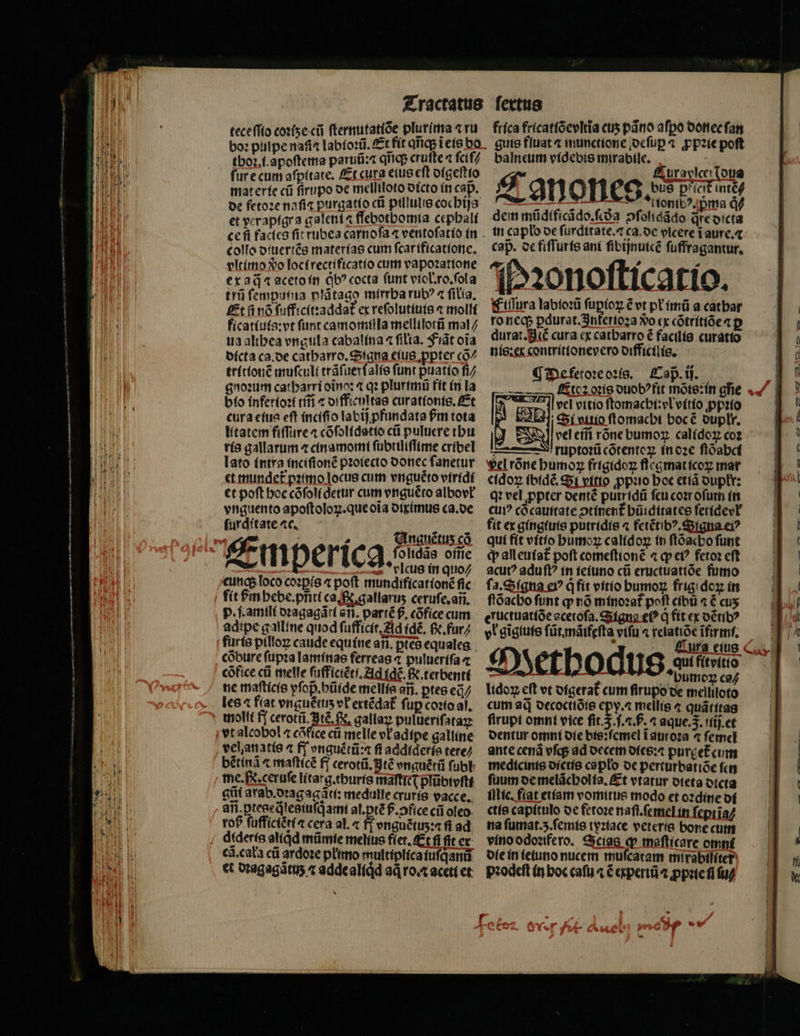 Tractatus
teceſſio coꝛiʒe cū ſternutatiōe plurima ⁊ ru
boꝛ pulpe naſi⁊ labioꝛū. Et fit qñqꝫ ī eis bo
thoꝛ .i. apoſtema paruū:⁊ qñqꝫ cruſte ⁊ ſciſ/
ſure cum aſpitate. Et cura eius eſt digeſtio
materie cū ſirupo de melliloto dicto in cap̄.
de fetoꝛe naſi⁊ purgatio cū pillulis cochijs
et yerapigra galeni ⁊ flebothomia cephali
ce ſi facies ſit rubea carnoſa ⁊ ventoſatio in
collo diuertēs materias cum ſcarificatione.
vltimo ꝟo loci rectificatio cum vapoꝛatione
ex aq̄ ⁊ aceto in qͥbꝰ cocta ſunt viol.ro.ſola
trū ſempuiua plātago mirrha rubꝰ ⁊ ſilia.
Et ſi nō ſufficit:addat̄ ex reſolutiuis ⁊ molli
ficatiuis:vt ſunt camomilla mellilotū mal/
ua althea vngula cabalina ⁊ ſilia. Fiāt oīa
dicta ca.de catharro. Signa eius ꝓpter cō/
tritionē muſculi trāſuerſalis ſunt puatio ſi/
gnoꝛum catharri oīno: ⁊ qꝛ plurimū fit in la
bio inferioꝛi tm̄ ⁊ difficultas curationis. Et
cura eius eſt inciſio labij ꝓfundata ẜm tota
litatem fiſſure ⁊ cōſolidatio cū puluere thu
ris gallarum ⁊ cinamomi ſubtiliſſime cribel
lato intra inciſionē pꝛoiecto donec ſanetur
et mundet̄ pꝛimo locus cum vnguēto viridi
et poſt hoc cōſolidetur cum vnguēto alboꝝ
vnguento apoſtoloꝝ.que oīa diximus ca.de
ſurditate ⁊c.
Emperica. Unguētuꝫ cō
ſolidās oīne
vlcus in quo/
cunqꝫ loco coꝛpis ⁊ poſt mundificationē ſic
fit ẜm hebe.pn̄ti ca.℞.gallaruꝫ ceruſe.an̄.
p.i.amili dꝛagagāti an̄. partē ẜ. cōfice cum
adipe galline quod ſufficit. Ad idē. ℞.fur/
furis pilloꝝ caude equine an̄. ptes equales
cōbure ſupꝛa laminas ferreas ⁊ pulueriſa ⁊
cōfice cū melle ſufficiēti. Ad idē.℞.terbenti
ne maſticis yſop̄.hūide mellis an̄. ptes eq̄/
les ⁊ fiat vnguētuꝫ vt̄ extēdat̄ ſup coꝛio al.
molli ſꝫ cerotū. Itē.℞. gallaꝝ pulueriſataꝝ
vt alcohol ⁊ cōfice cū melle vł adipe galline
vel anatis ⁊ ſꝫ vnguētū:⁊ ſi addideris tere/
bētinā ⁊ maſticē ſꝫ cerotū. Itē vnguētū ſubl
me.℞.ceruſe litarg.thuris maſtici plūbivſti
gūi arab.dꝛagagāti: medulle cruris vacce.
an̄.ptes eq̄les iuſq̄ami al.ptē ẜ.ꝯfice cū oleo
roẜ ſufficiēti ⁊ cera al. ⁊ ſꝫ vnguētuꝫ:⁊ ſi ad
dideris aliqͥd mūmie melius fiet. Et ſi fit ex
cā.cała cū ardoꝛe pl̄imo multiplica iuſq̄anū
et dꝛagagātuꝫ ⁊ adde aliqͥd aq̄ ro.⁊ aceti et
ſextus
frica fricatiōevltīa cuꝫ pāno aſpo donec ſan
guis fluat ⁊ inunctione ꝺeſup ⁊ ꝓpꝛie poſt
balneum videbis mirabile.
Canones. Cura vlceꝝ iſtoꝝ
duobꝰ pͥficit̄ intē/
tionibꝰ.pͥma qͥ/
dem mūdificādo.ſcḋa ꝯſolidādo q̄re dicta
in caplo de ſurditate.⁊ ca.de vlcere ī aure.⁊
cap̄. de fiſſuris ani ſibijnuicē ſuffragantur.
Pꝛonoſticatio.
Fiſſura labioꝛū ſupioꝝ ē vt pl̄imū a cathar
ro necqꝫ pdurat. Inferioꝛa ꝟo ex cōtritiōe ⁊ ꝑ
durat. Itē cura ex catharro ē facilis curatio
nis:ex contritione vero difficilis.
¶ De fetoꝛe oꝛis. Cap̄. ij.
Fetoꝛ oꝛis duobꝰ fit mōis:in gn̄e
vel vitio ſtomachi:vł vitio ꝓpꝛio
Si vitio ſtomachi hoc ē duplr̄.
vel em̄ rōne humoꝝ calidoꝝ coꝛ
ruptoꝛū cōtentoꝝ in oꝛe ſtōabci
Vel rōne humoꝝ frigidoꝝ flegmaticoꝝ mar
cidoꝝ ibidē. Si vitio ꝓpꝛio hoc etiā duplr̄:
qꝛ vel ꝓpter dentē putridū ſeu coꝛroſum in
cuiꝰ cōcauitate ꝯtinent̄ hūiditates fetide vł
fit ex gingiuis putridis ⁊ fetētibꝰ. Signa eiꝰ
qui fit vitio humoꝝ calidoꝝ in ſtōacho ſunt
ꝙ alleuiat̄ poſt comeſtionē ⁊ ꝙ eiꝰ fetoꝛ eſt
acutꝰ aduſtꝰ in ieiuno cū eructuatiōe fumo
ſa. Signa eiꝰ q̄ fit vitio humoꝝ frigidoꝝ in
ſtōacho ſunt ꝙ nō mīnoꝛat̄ poſt cibū ⁊ ē cuꝫ
eructuatiōe acetoſa. Signa eiꝰ q̄ fit ex dētibꝰ
vł gīgiuis ſūt,māifeſta viſu ⁊ relatiōe īfirmi.
Methodus. Cura eius
qui fit vitio
humoꝝ ca/
lidoꝝ eſt vt digerat̄ cum ſirupo de melliloto
cum aq̄ decoctiōis epy.⁊ mellis ⁊ quātitas
ſirupi omni vice fit.℥.i.⁊.ẜ. ⁊ aque.℥.iiij.et
dentur omni die bis:ſemel ī auroꝛa ⁊ ſemel
ante cenā vſqꝫ ad decem dies:⁊ purget̄ cum
medicinis dictis caplo de perturbatiōe ſen
ſuum de melācholia. Et vtatur dieta dicta
illic. fiat etiam vomitus modo et oꝛdine di
ctis capitulo de fetoꝛe naſi.ſemel in ſeptīa/
na ſumat.ʒ.ſemis tyꝛiace veteris bone cum
vino odoꝛifero. Scias ꝙ maſticare omni
die in ieiuno nucem muſcatam mirabilitet̄
pꝛodeſt in hoc caſu ⁊ ē expertū ⁊ ꝓpꝛie ſi ſu/
Fetoꝛ